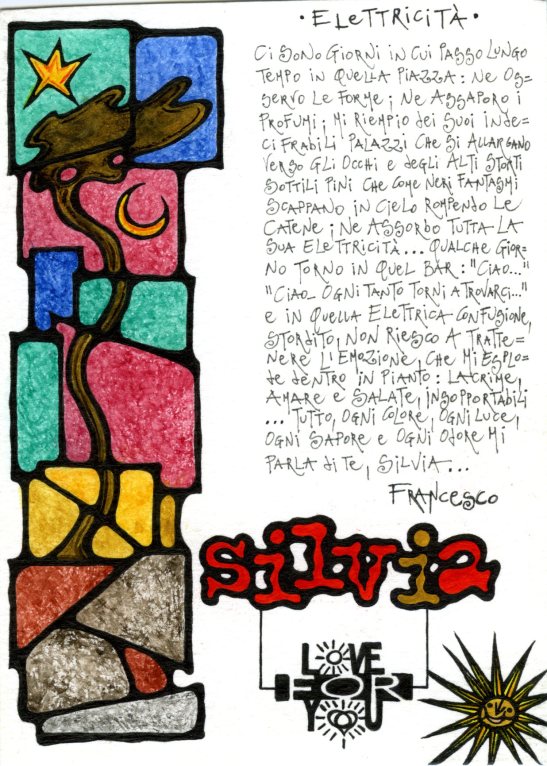 • ELETTRICITÀ •
CI SONO GIORNI IN CUI PASSO LUNGO
TEMPO IN QUELLA PIAZZA: NE OS=
SERVO LE FORME; NE ASSAPORO I
PROFUMI; MI RIEMPIO DEI SUOI INDE=
CIFRABILI PALAZZI CHE SI ALLARGANO
VERSO GLI OCCHI E DEGLI ALTI STORTI
SOTTILI PINI CHE COME NERI FANTASMI
SCAPPANO IN CIELO ROMPENDO LE
CATENE; NE ASSORBO TUTTA LA
SUA ELETTRICITÀ... QUALCHE GIOR=
NO TORNO IN QUEL BAR: "CIAO..."
"CIAO. OGNI TANTO TORNI A TROVARCI..."
E IN QUELLA ELETTRICA CONFUSIONE,
STORDITO, NON RIESCO A TRATTE=
NERE L'EMOZIONE, CHE MI ESPLO=
DE DENTRO IN PIANTO: LACRIME,
AMARE E SALATE, INSOPPORTABILI
... TUTTO, OGNI COLORE, OGNI LUCE,
OGNI SAPORE E OGNI ODORE MI
PARLA DI TE, SILVIA...
FRANCESCO
silvia
LOVE
FOR
YOU